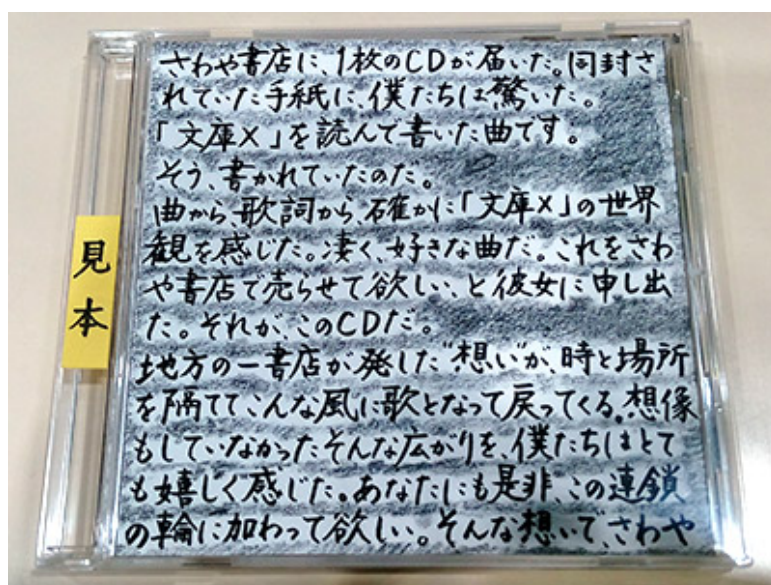 さわや書店に、1枚のCDが届いた。同封さ
れていた手紙に、僕たちは驚いた。
「文庫X」を読んで書いた曲です。
そう、書かれていたのだ。
曲から、歌詞から、確かに「文庫X」の世界
観を感じた。凄く、好きな曲だ。これをさわ
や書店で売らせて欲しい、と彼女に申し出
た。それが、このCDだ。
地方の一書店が発した"想い"が、時と場所
を隔ててこんな風に歌となって戻ってくる。想像
もしていなかったそんな広がりを、僕たちはとて
も嬉しく感じた。あなたにも是非、この連鎖
の輪に加わって欲しい。そんな想いで、さわや
見本